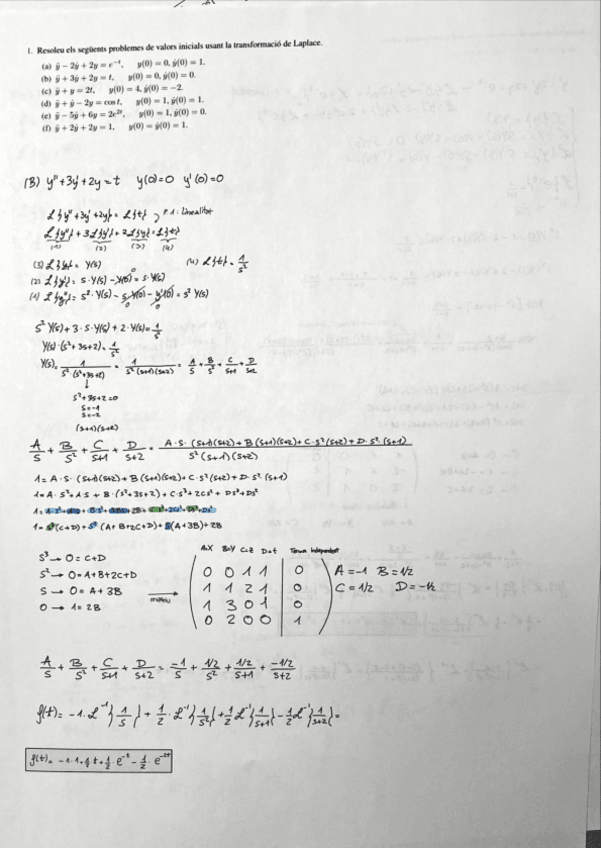 1. Resoleu els següents problemes de valors inicials usant la transformació de Laplace.
(a) ÿ − 2ẏ + 2y = e^{-t}, y(0) = 0, ẏ(0) = 1.
(b) ÿ + 3ẏ + 2y = t, y(0) = 0, ẏ(0) = 0.
(c) ÿ + y = 2t, y(0) = 4, ẏ(0) = −2.
(d) ÿ + ẏ − 2y = cos t, y(0) = 1, ẏ(0) = 1.
(e) ÿ − 5ẏ + 6y = 2e^{2t}, y(0) = 1, ẏ(0) = 0.
(f) ÿ + 2ẏ + 2y = 1, y(0) = ẏ(0) = 1.
(B) y'' + 3y' + 2y = t y(0)=0 y'(0)=0
L{y'' + 3y' + 2y} = L{t} P.1: Linealitat
L{y''} + 3L{y'} + 2L{y} = L{t}
(1) (2) (3) (4)
(3) L{y} = Y(s) (4) L{t} = 1/s²
(2) L{y'} = s·Y(s) − y(0) = s·Y(s)
(1) L{y''} = s²·Y(s) − s·y(0) − y'(0) = s² Y(s)
s² Y(s) + 3·s·Y(s) + 2·Y(s) = 1/s²
Y(s)·(s²+3s+2) = 1/s²
Y(s) = 1/(s²(s²+3s+2)) = 1/(s²(s+1)(s+2)) = A/s + B/s² + C/(s+1) + D/(s+2)
s²+3s+2=0
s=-1
s=-2
(s+1)(s+2)
A/s + B/s² + C/(s+1) + D/(s+2) = (A·s·(s+1)(s+2) + B(s+1)(s+2) + C·s²(s+2) + D·s²(s+1))/(s²(s+1)(s+2))
1 = A·s·(s+1)(s+2) + B(s+1)(s+2) + C·s²(s+2) + D·s²·(s+1)
1 = A·s²+A·s + B·(s²+3s+2) + C·s³+2Cs² + Ds³+Ds²
1 = s³(C+D) + s²(A+B+2C+D) + s(A+3B) + 2B
s³ → 0 = C+D
s² → 0 = A+B+2C+D
s → 0 = A+3B
0 → 1 = 2B
matriu
A=X B=Y C=Z D=t Terme independent
0 0 1 1 0
1 1 2 1 0
1 3 0 1 0
0 2 0 0 1
A=-1 B=1/2
C=1/2 D=-1/2
A/s + B/s² + C/(s+1) + D/(s+2) = -1/s + (1/2)/s² + (1/2)/(s+1) + (-1/2)/(s+2)
f(t) = -1·L⁻¹{1/s} + 1/2·L⁻¹{1/s²} + 1/2 L⁻¹{1/(s+1)} − 1/2 L⁻¹{1/(s+2)} =
f(t) = -1·1+1/2 t + 1/2·e^{-t} − 1/2·e^{-2t}